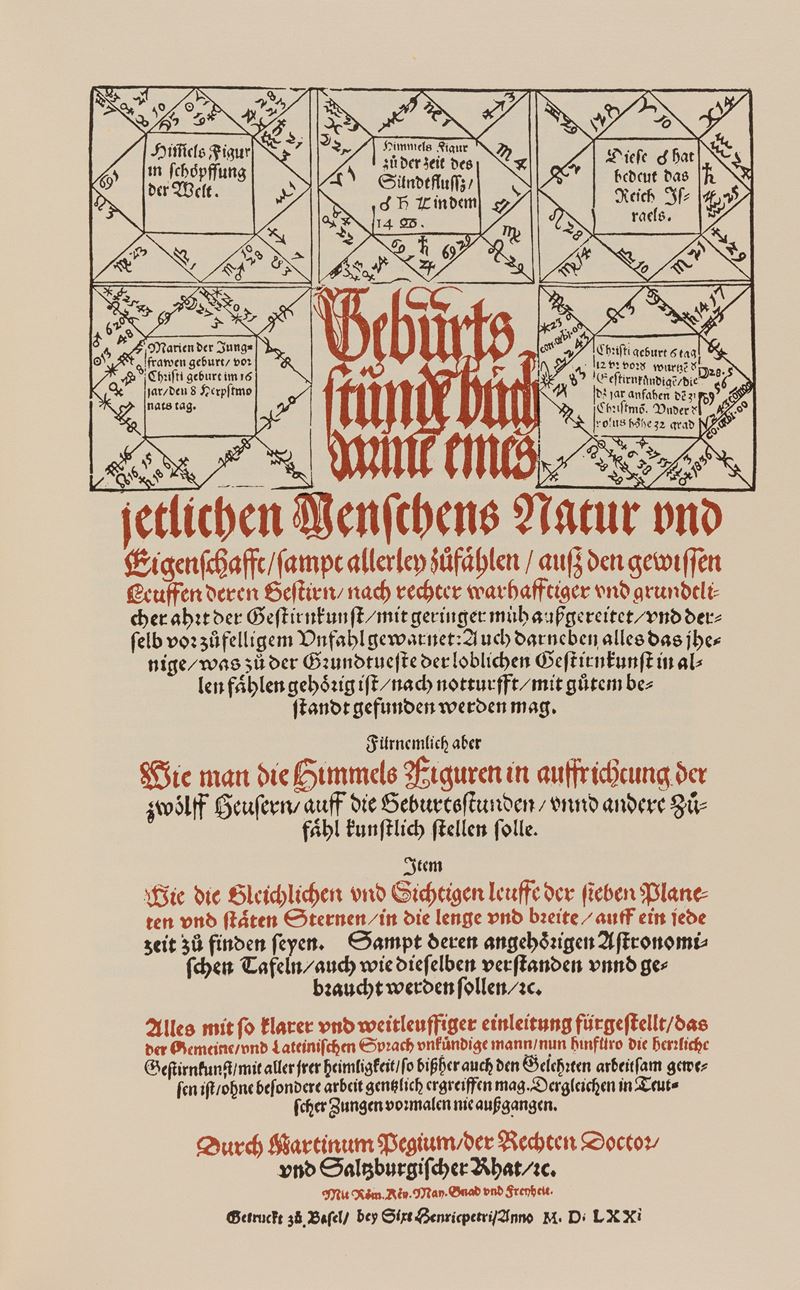 Him̅els Figur
in schöpffung
der Welt.
Himmels Figur
zů der zeit des
Sündtflussz/
☌ ♄ ♃ in dem
14
Diese ☌ hat
bedeut das
Reich Js⸗
raels.
Marien der Jung⸗
frawen geburt/ vor
Christi geburt im 16
jar/den 8 Herpstmo
nats tag.
Christi geburt 6 tag
die
jar anfahen
Christmō. Vnder
polus höhe 32 grad
Geburts
stund̄e bůch
darine eines
jetlichen Menschens Natur vnd
Eigenschafft/sampt allerley zůfählen/ auß den gewissen
Leuffen deren Gestirn/ nach rechter warhafftiger vnd grundtli⸗
cher ahrt der Gestirnkunst/mit geringer müh außgereitet/vnd der⸗
selb vor zůfelligem Vnfahl gewarnet: Auch darneben alles das jhe⸗
nige/was zů der Grundtueste der loblichen Gestirnkunst in al⸗
len fählen gehörig ist/nach notturfft/mit gůtem be⸗
standt gefunden werden mag.
Fürnemlich aber
Wie man die Himmels Figuren in auffrichtung der
zwölff Heusern/auff die Geburtsstunden/ vnnd andere Zů⸗
fähl kunstlich stellen solle.
Jtem
Wie die Gleichlichen vnd Sichtigen leuffe der sieben Plane⸗
ten vnd stäten Sternen/in die lenge vnd breite/auff ein jede
zeit zů finden seyen. Sampt deren angehörigen Astronomi⸗
schen Tafeln/auch wie dieselben verstanden vnnd ge⸗
braucht werden sollen/ꝛc.
Alles mit so klarer vnd weitleuffiger einleitung fürgestellt/das
der Gemeine/vnd Lateinischen Sprach vnkündige mann/nun hinfüro die herrliche
Gestirnkunst/mit aller jrer heimligkeit/so bißher auch den Gelehrten arbeitsam gewe⸗
sen ist/ohne besondere arbeit gentzlich ergreiffen mag. Dergleichen in Teut⸗
scher Zungen vormalen nie außgangen.
Durch Martinum Pegium/der Rechten Doctor/
vnd Saltzburgischer Rhat/ꝛc.
Mit Röm. Key. May. Gnad vnd Freyheit.
Getruckt zů Basel/ bey Sixt Henricpetri/Anno M. D. LXXi